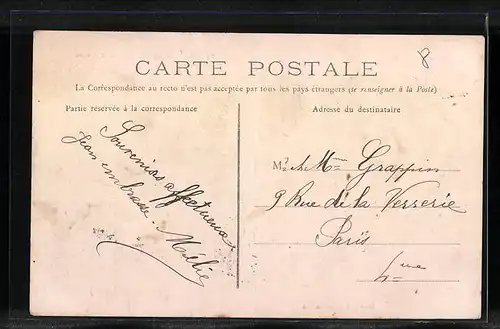 8
CARTE POSTALE
La Correspondance au recto n'est pas acceptée par tous les pays étrangers (se renseigner à la Poste)
Partie réservée à la correspondance
Adresse du destinataire
Souvenirs affectueux
Jean embrasse Mélie
M? & Mme Grappin
9 Rue de la Verrerie
Paris
4me